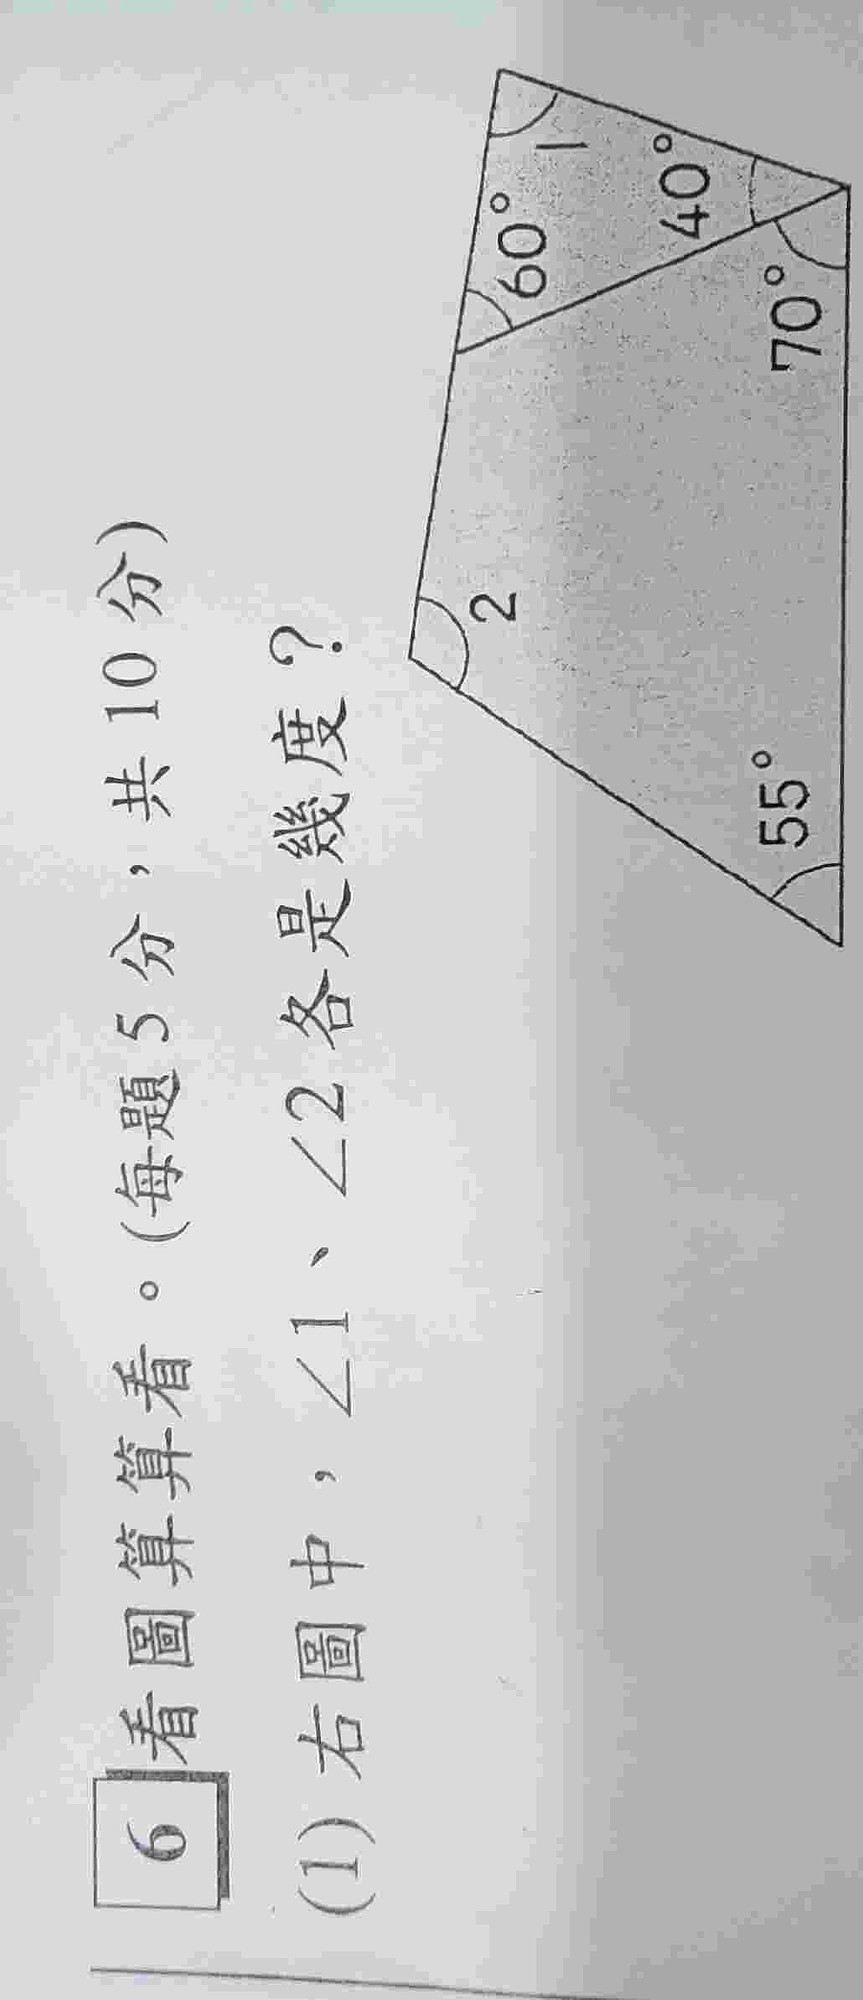 6 看圖算算看。(每題5分，共10分)
(1) 右圖中，∠1、∠2各是幾度？
2
60°
1
40°
55°
70°